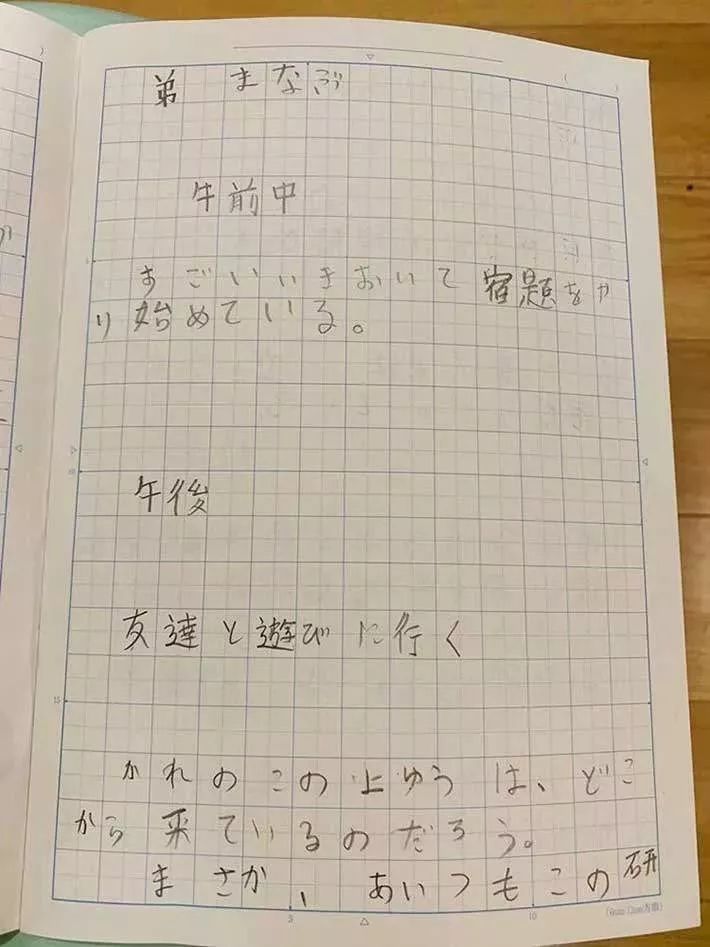 弟 まなぶ
午前中
すごいいきおいて宿題をや
り始めている。
午後
友達と遊びに行く
かれのこの上ゆうは、どこ
から来ているのだろう。
まさか、あいつもこの研